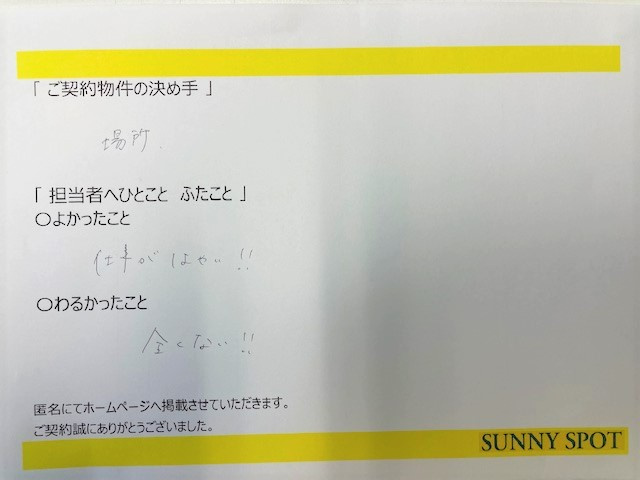 「 ご契約物件の決め手 」
場所.
「 担当者へひとこと ふたこと 」
○よかったこと
仕事がはやい!!
○わるかったこと
全くない!!
匿名にてホームページへ掲載させていただきます。
ご契約誠にありがとうございました。
SUNNY SPOT